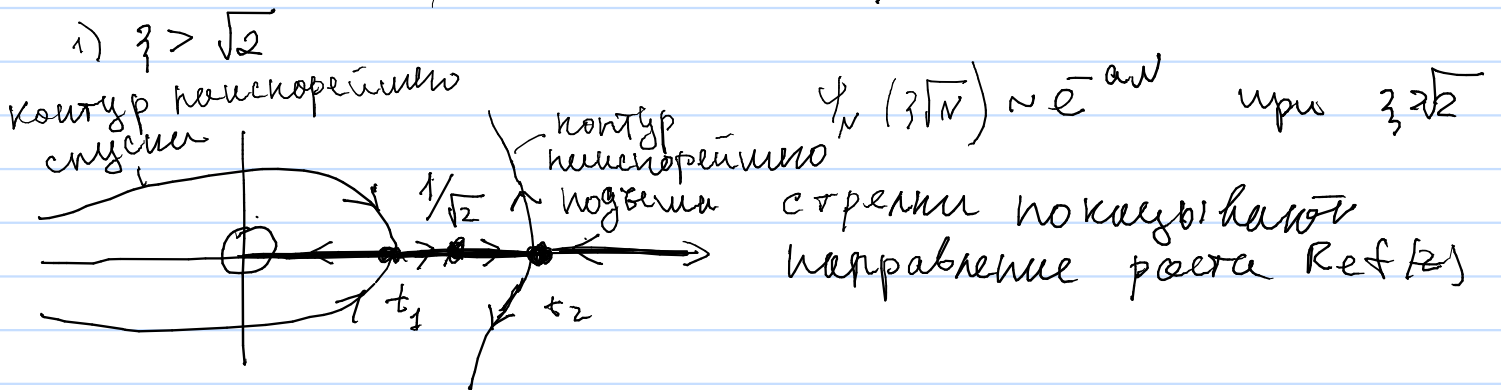 1) ξ > √2
контур наискорейшего
спуска
контур
наискорейшего
подъема
1/√2
t₁
t₂
ψ_N (ξ√N) ~ e^{-aN} при ξ>√2
стрелки показывают
направление роста Ref(z)